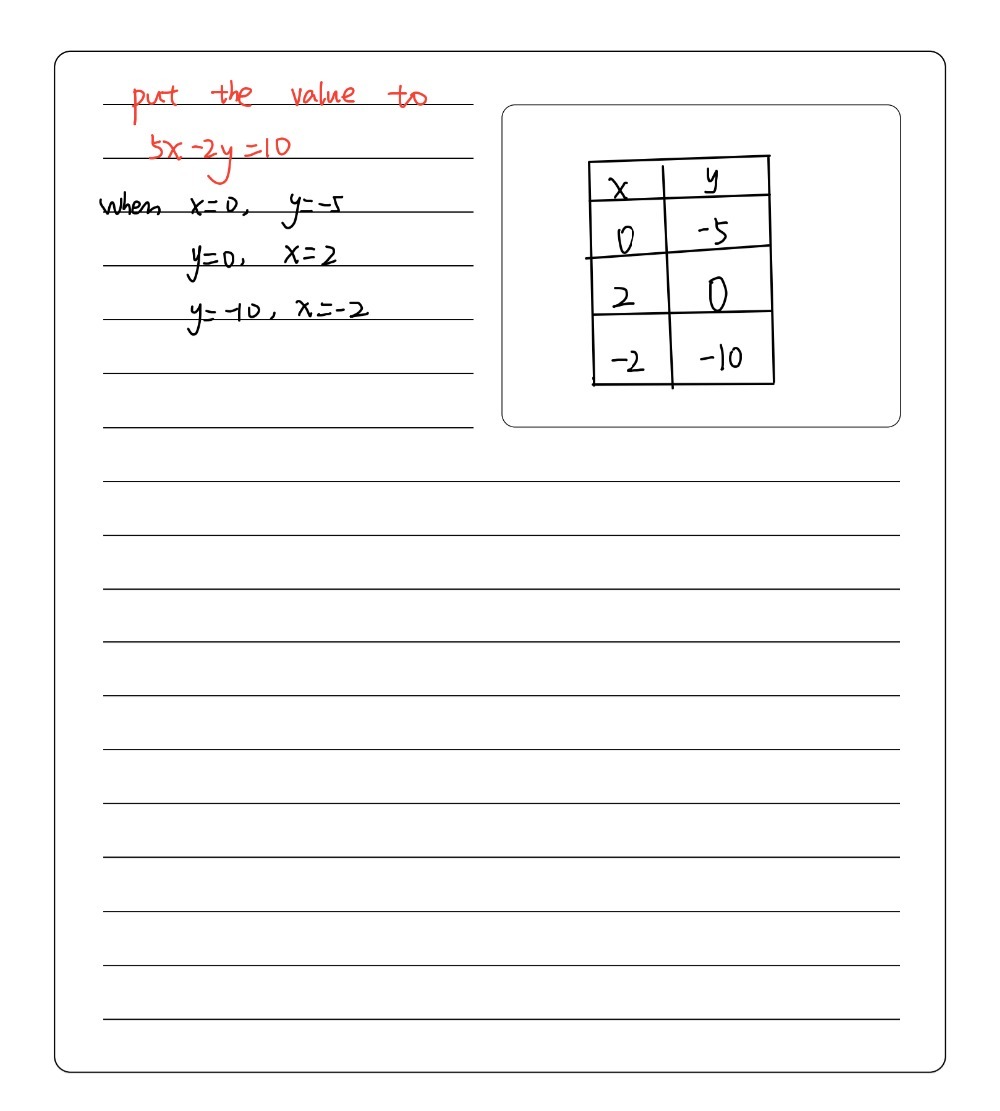 put the value to
5x-2y=10
when x=0, y=-5
y=0, x=2
y=-10, x=-2
x y
0 -5
2 0
-2 -10